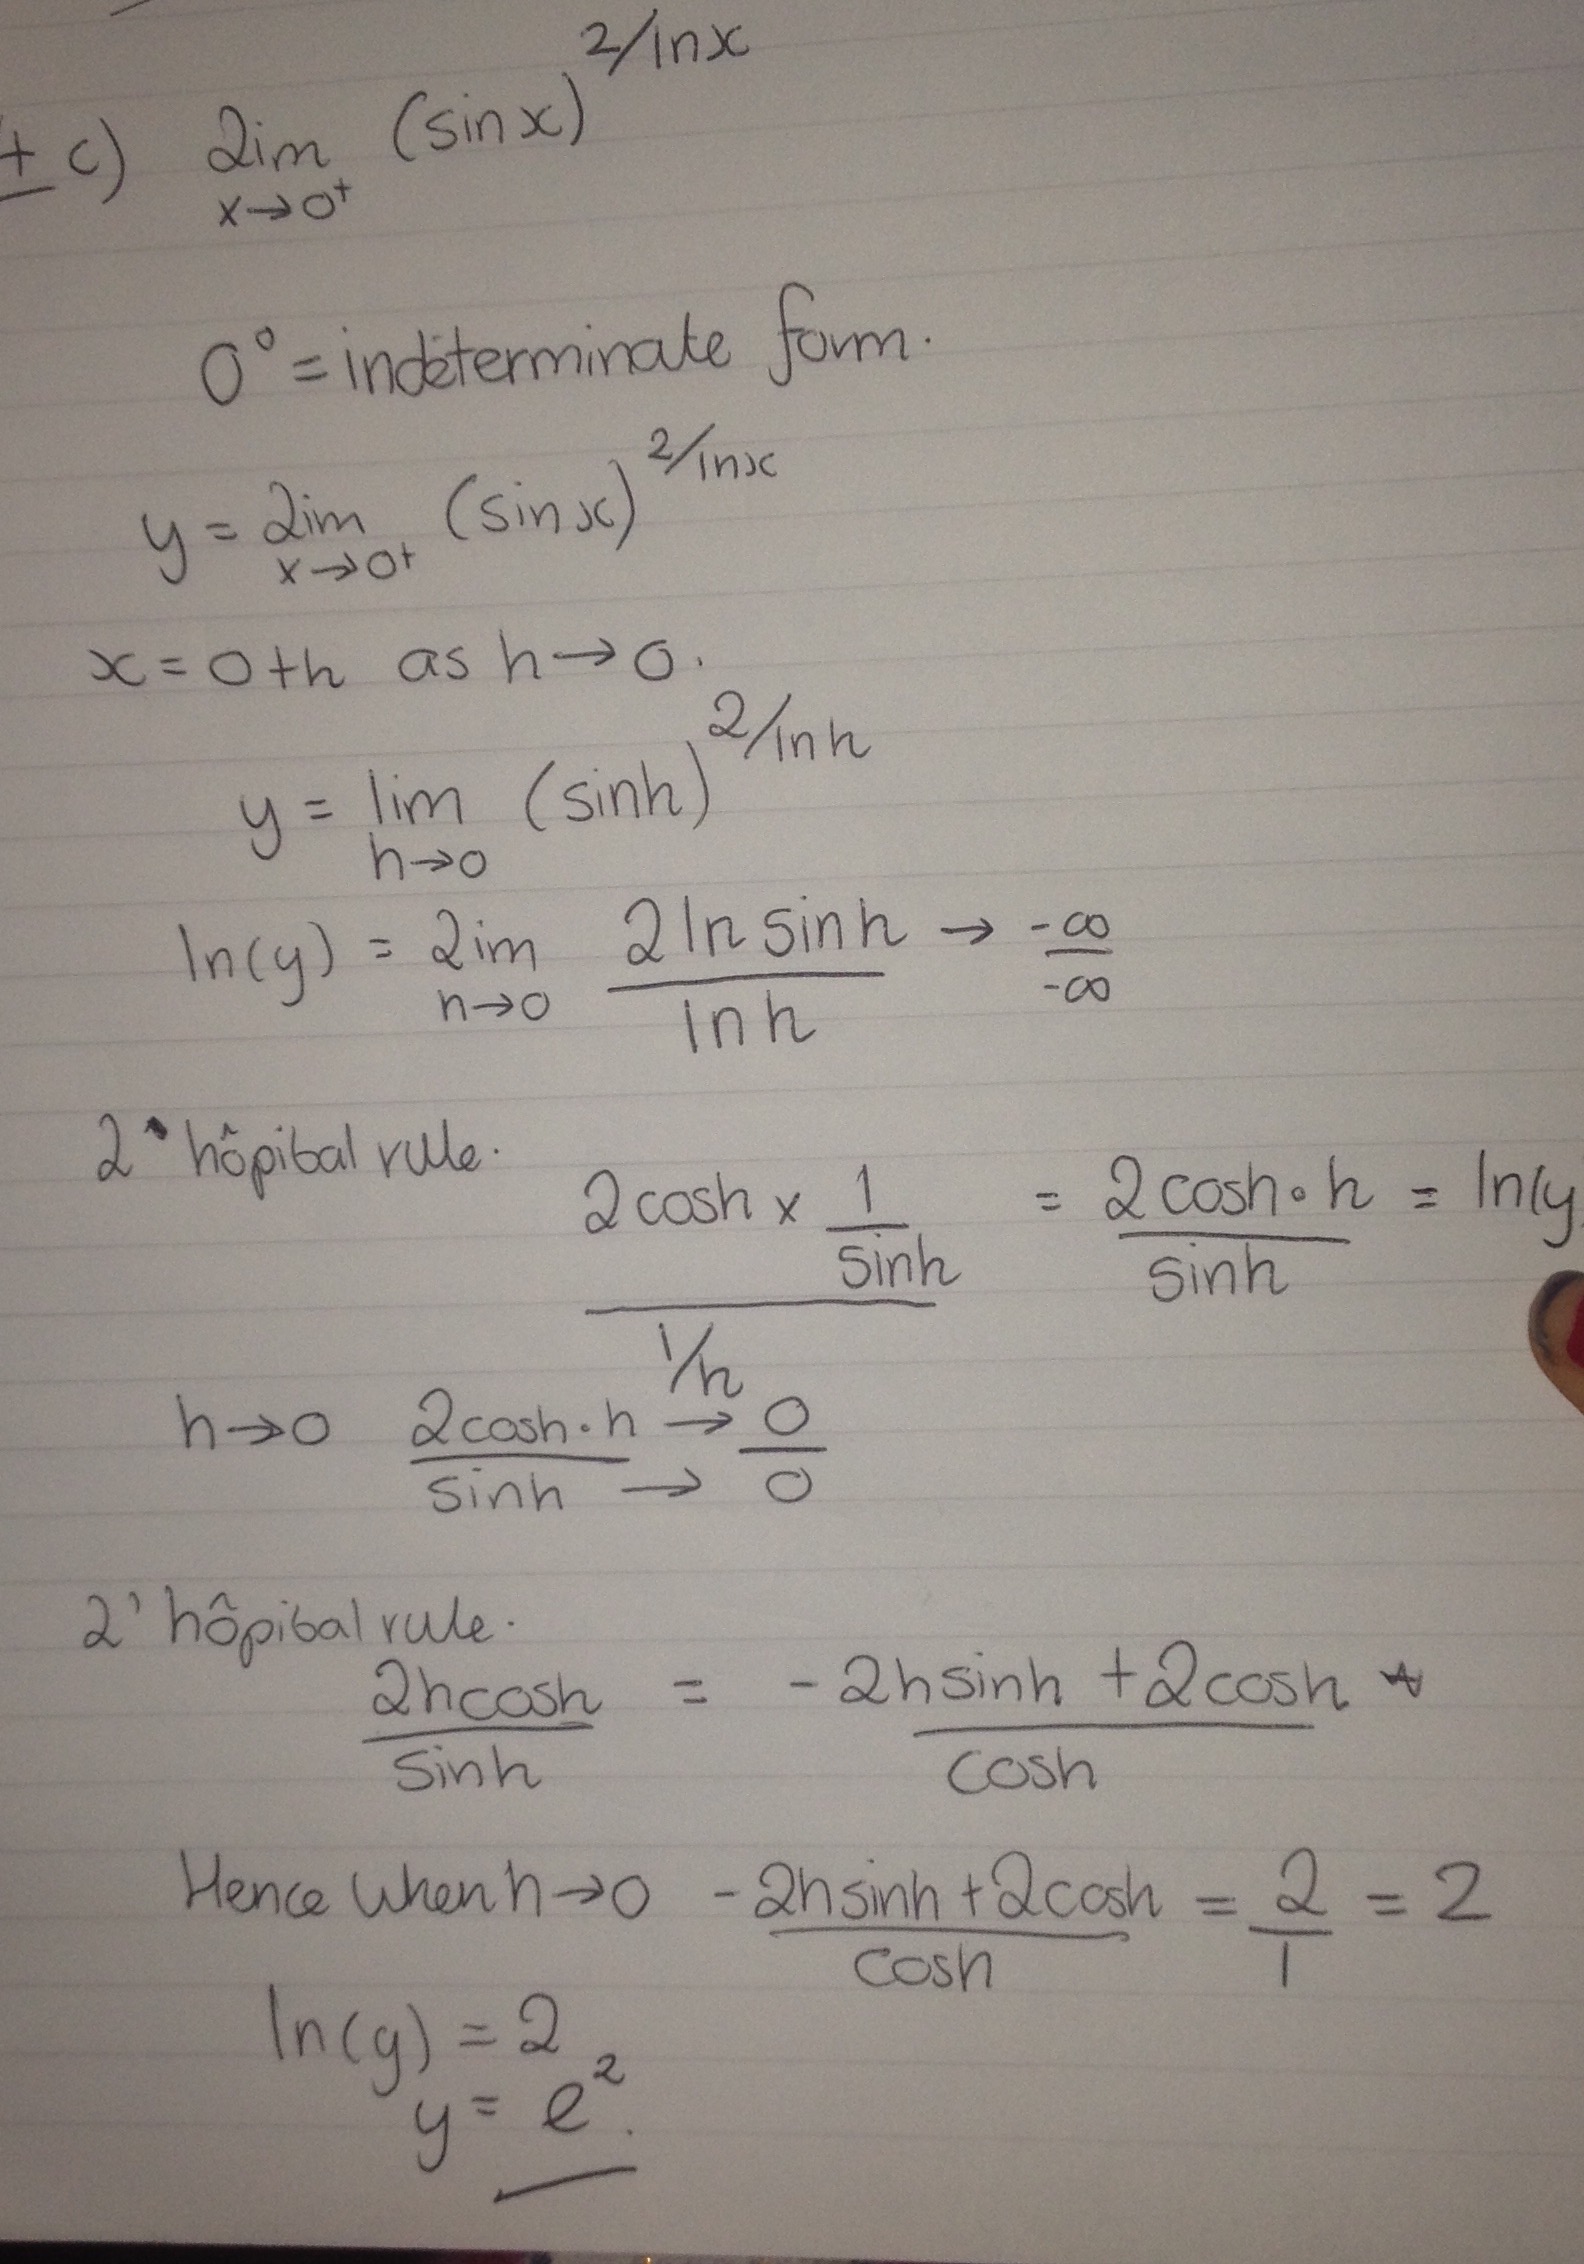 ± c) lim (sinx)^2/lnx
x→0⁺
0⁰ = indeterminate form.
y = lim (sinx)^2/lnx
x→0+
x = 0+h as h→0.
y = lim (sinh)^2/lnh
h→0
ln(y) = lim 2 ln sinh / ln h → -∞/-∞
h→0
L'hôpital rule.
2cosh × 1/sinh / 1/h = 2cosh•h / sinh = ln(y
h→0 2cosh·h / sinh → 0 / → 0
L'hôpital rule.
2hcosh / sinh = -2hsinh + 2cosh / cosh
Hence when h→0 -2hsinh + 2cosh / cosh = 2/1 = 2
ln(y) = 2
y = e².